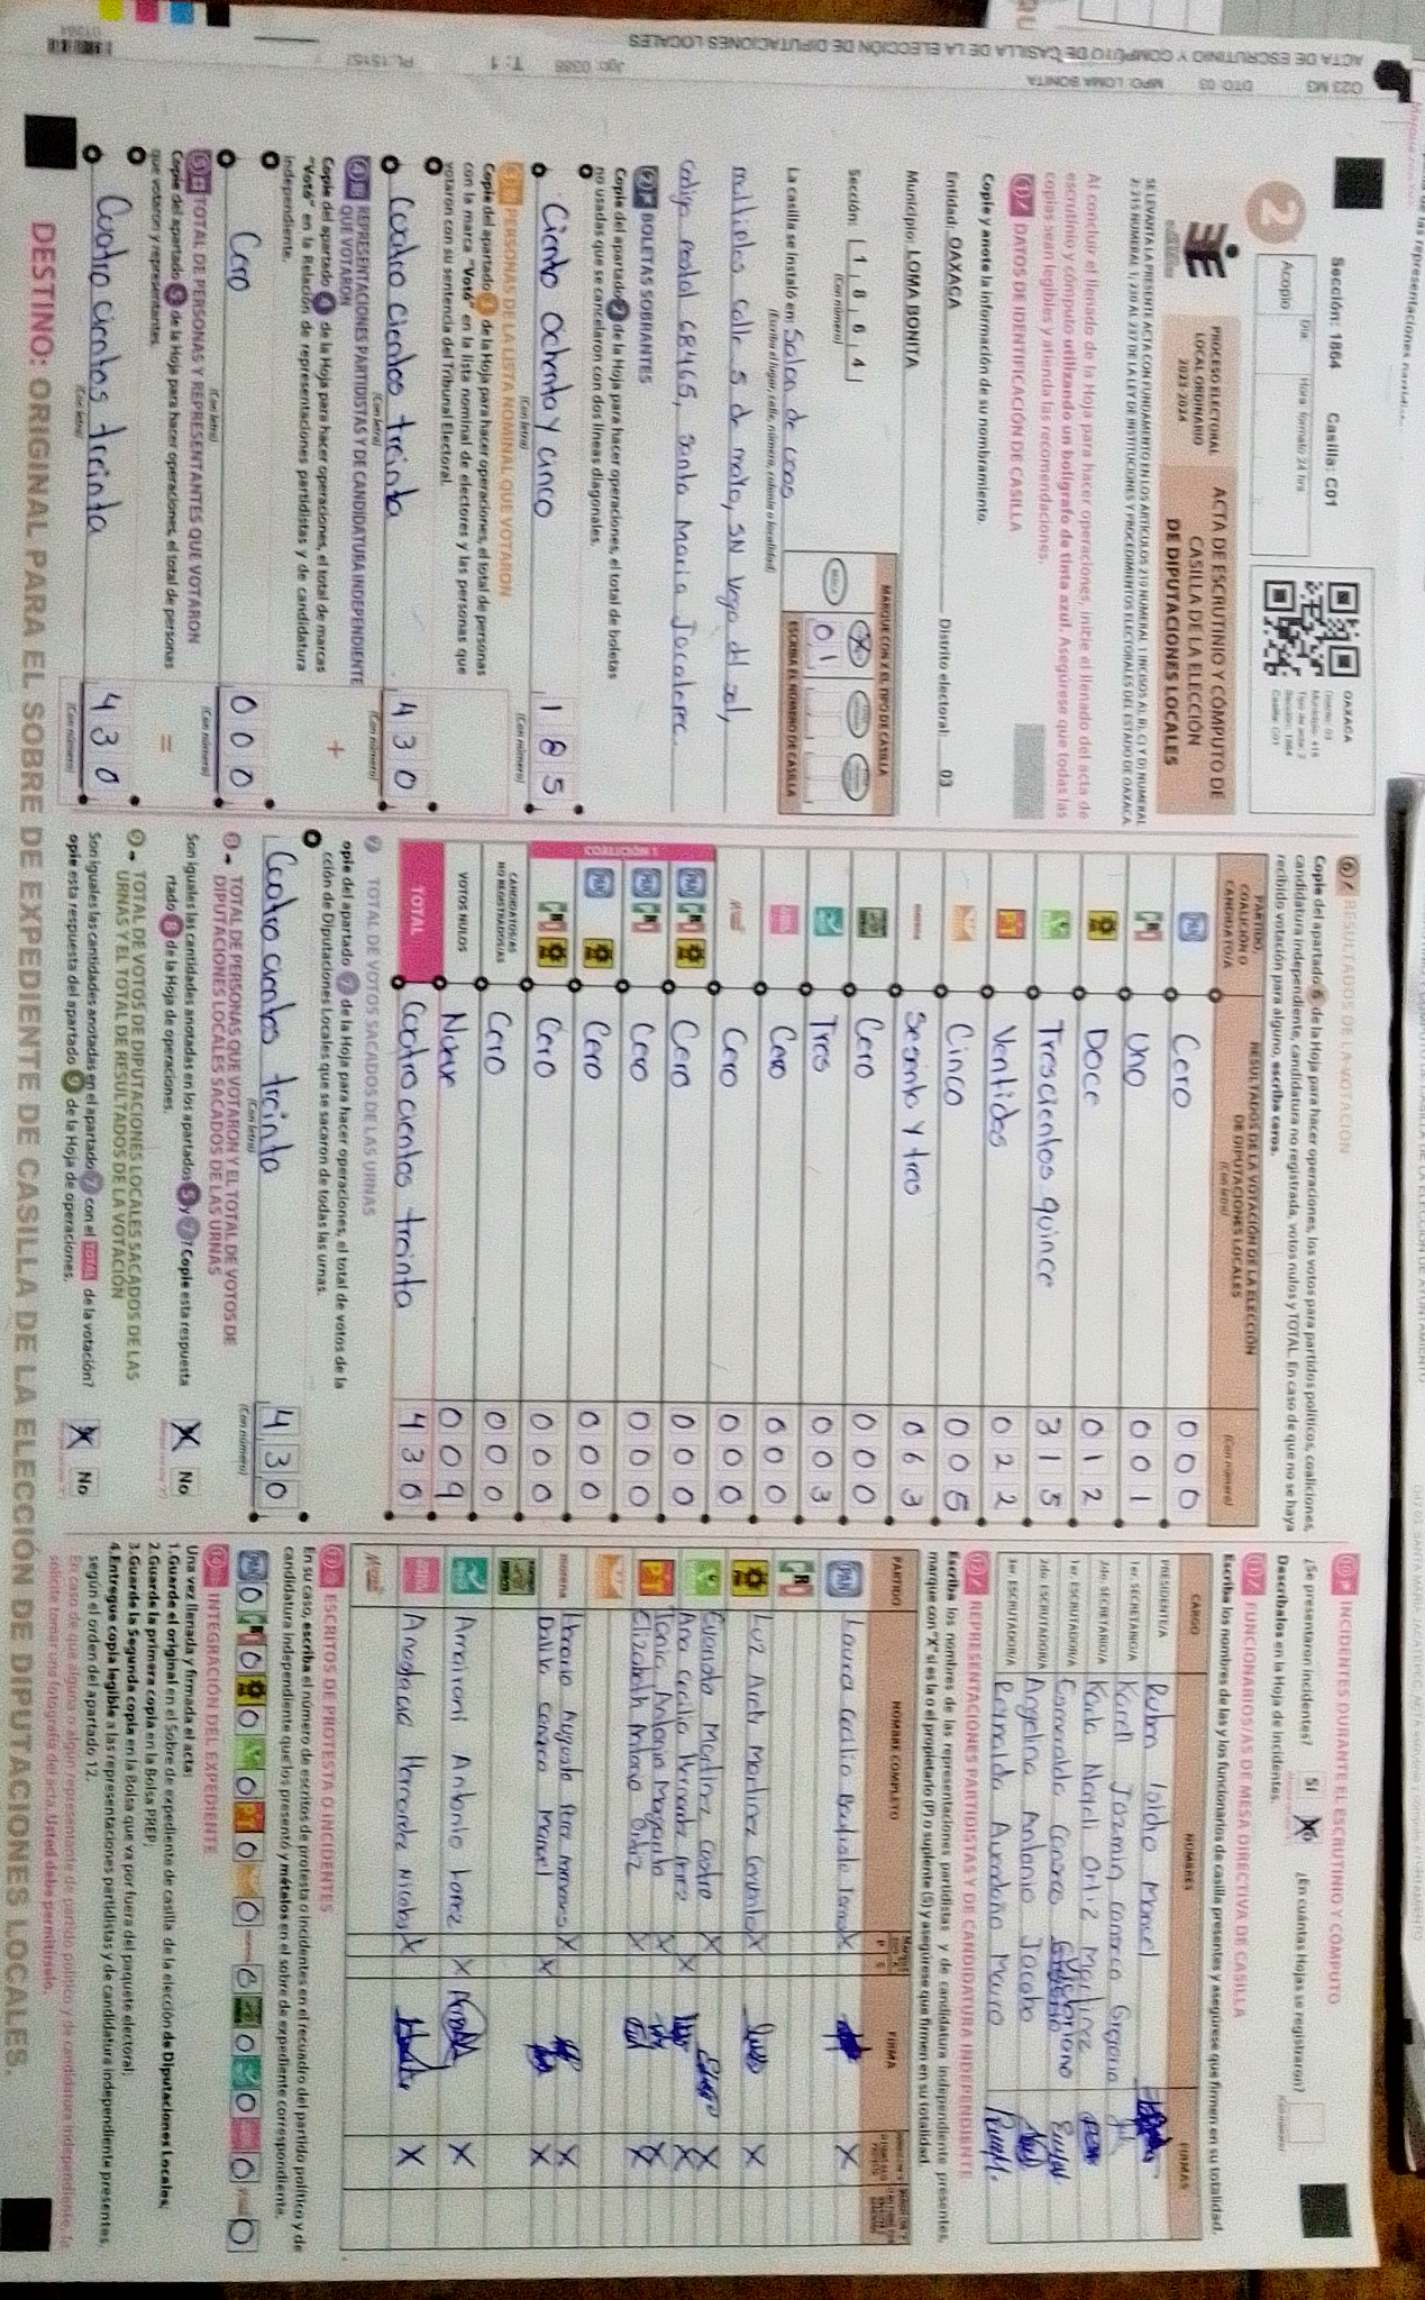 Sección: 1864 Casilla: C01
OAXACA
2
Acopio
Día:
Hora: formato 24 hrs
PROCESO ELECTORAL
LOCAL ORDINARIO
2023-2024
ACTA DE ESCRUTINIO Y CÓMPUTO DE
CASILLA DE LA ELECCIÓN
DE DIPUTACIONES LOCALES
Al concluir el llenado de la Hoja para hacer operaciones, inicie el llenado del acta de
escrutinio y cómputo utilizando un bolígrafo de tinta azul. Asegúrese que todas las
copias sean legibles y atienda las recomendaciones.
1 DATOS DE IDENTIFICACIÓN DE CASILLA
Copie y anote la información de su nombramiento.
Entidad: OAXACA Distrito electoral: 03
Municipio: LOMA BONITA
Sección: 1 8 6 4
(Con número)
MARQUE CON X EL TIPO DE CASILLA
0 1
ESCRIBA EL NÚMERO DE CASILLA
La casilla se instaló en: Salon de usos
(Escriba el lugar, calle, número, colonia o localidad)
multiples calle 5 de mayo, SN Vega del sol,
codigo postal 68465, Santa Maria Jacatepec.
2 BOLETAS SOBRANTES
Copie del apartado 2 de la Hoja para hacer operaciones, el total de boletas
no usadas que se cancelaron con dos líneas diagonales.
Ciento Ochenta y cinco 1 8 5
(Con letra) (Con número)
3 PERSONAS DE LA LISTA NOMINAL QUE VOTARON
Copie del apartado 3 de la Hoja para hacer operaciones, el total de personas
con la marca "Votó" en la lista nominal de electores y las personas que
votaron con su sentencia del Tribunal Electoral.
Cuatro cientos treinta 4 3 0
(Con letra) (Con número)
4 REPRESENTACIONES PARTIDISTAS Y DE CANDIDATURA INDEPENDIENTE
QUE VOTARON
Copie del apartado 4 de la Hoja para hacer operaciones, el total de marcas
"Votó" en la Relación de representaciones partidistas y de candidatura
independiente. +
Cero 0 0 0
(Con letra) (Con número)
5 TOTAL DE PERSONAS Y REPRESENTANTES QUE VOTARON
Copie del apartado 5 de la Hoja para hacer operaciones, el total de personas
que votaron y representantes. =
Cuatro cientos treinta 4 3 0
(Con letra) (Con número)
6 RESULTADOS DE LA VOTACIÓN
Copie del apartado 6 de la Hoja para hacer operaciones, los votos para partidos políticos, coaliciones,
candidatura independiente, candidatura no registrada, votos nulos y TOTAL. En caso de que no se haya
recibido votación para alguno, escriba ceros.
PARTIDO, COALICIÓN O CANDIDATO/A
RESULTADOS DE LA VOTACIÓN DE LA ELECCIÓN
DE DIPUTACIONES LOCALES
(Con letra) (Con número)
PAN Cero 0 0 0
PRI Uno 0 0 1
Doce 0 1 2
Trescientos quince 3 1 5
PT Ventidos 0 2 2
Cinco 0 0 5
morena Sesenta y tres 0 6 3
Cero 0 0 0
Tres 0 0 3
Cero 0 0 0
Cero 0 0 0
COALICIÓN 1
Cero 0 0 0
Cero 0 0 0
Cero 0 0 0
Cero 0 0 0
CANDIDATOS/AS
NO REGISTRADOS/AS Cero 0 0 0
VOTOS NULOS Nueve 0 0 9
TOTAL Cuatro cientos treinta 4 3 0
7 TOTAL DE VOTOS SACADOS DE LAS URNAS
opie del apartado 7 de la Hoja para hacer operaciones, el total de votos de la
cción de Diputaciones Locales que se sacaron de todas las urnas.
Cuatro cientos treinta 4 3 0
(Con letra) (Con número)
8 TOTAL DE PERSONAS QUE VOTARON Y EL TOTAL DE VOTOS DE
DIPUTACIONES LOCALES SACADOS DE LAS URNAS
Son iguales las cantidades anotadas en los apartados 5 y 7? Copie esta respuesta
rtado 8 de la Hoja de operaciones. No
9 TOTAL DE VOTOS DE DIPUTACIONES LOCALES SACADOS DE LAS
URNAS Y EL TOTAL DE RESULTADOS DE LA VOTACIÓN
Son iguales las cantidades anotadas en el apartado 7 con el TOTAL de la votación?
opie esta respuesta del apartado 9 de la Hoja de operaciones. No
10 INCIDENTES DURANTE EL ESCRUTINIO Y CÓMPUTO
¿Se presentaron incidentes? Sí No ¿En cuántas Hojas se registraron?
Descríbalos en la Hoja de incidentes.
11 FUNCIONARIOS/AS DE MESA DIRECTIVA DE CASILLA
Escriba los nombres de las y los funcionarios de casilla presentes y asegúrese que firmen en su totalidad.
CARGO NOMBRES FIRMAS
PRESIDENTE/A Ruben Isidro Manuel
1er. SECRETARIO/A Karell Jazmin Canseco Gregorio
2do. SECRETARIO/A Karla Nayeli Ortiz Martinez
1er. ESCRUTADOR/A Esmeralda Canseco Victoriano
2do. ESCRUTADOR/A Angelina Antonio Jacobo
3er. ESCRUTADOR/A Reinalda Avendaño Mauro
12 REPRESENTACIONES PARTIDISTAS Y DE CANDIDATURA INDEPENDIENTE
Escriba los nombres de las representaciones partidistas y de candidatura independiente presentes,
marque con "X" si es la o el propietario (P) o suplente (S) y asegúrese que firmen en su totalidad.
PARTIDO NOMBRE COMPLETO FIRMA
PAN Laura Cecilia X X
PRI
Luz Areli Martinez X X
Martinez Castro X X
Ana Cecilia Hernandez Perez X X
PT Tania Antonio Margarito X X
Elizabeth Antonio Ortiz X X
morena Librario Augusto Perez X X
Dalila Canseco Manuel X X
Antonio Lopez X X
Anastacia Hernandez Nicolas X X
13 ESCRITOS DE PROTESTA O INCIDENTES
En su caso, escriba el número de escritos de protesta o incidentes en el recuadro del partido político y de
candidatura independiente que los presentó y métalos en el sobre de expediente correspondiente.
0 0 0 0 0 0 0 0 0 0 0
14 INTEGRACIÓN DEL EXPEDIENTE
Una vez llenada y firmada el acta:
1. Guarde el original en el Sobre de expediente de casilla de la elección de Diputaciones Locales;
2. Guarde la primera copia en la Bolsa PREP;
3. Guarde la Segunda copia en la Bolsa que va por fuera del paquete electoral;
4. Entregue copia legible a las representaciones partidistas y de candidatura independiente presentes,
según el orden del apartado 12.
En caso de que alguna o algún representante de partido político y de candidatura independiente, le
solicite tomar una fotografía del acta, Usted debe permitírselo.
DESTINO: ORIGINAL PARA EL SOBRE DE EXPEDIENTE DE CASILLA DE LA ELECCIÓN DE DIPUTACIONES LOCALES.
023 M3 DTO: 03 MPO: LOMA BONITA
ACTA DE ESCRUTINIO Y CÓMPUTO DE CASILLA DE LA ELECCIÓN DE DIPUTACIONES LOCALES
Jgo: 0388 T: 1